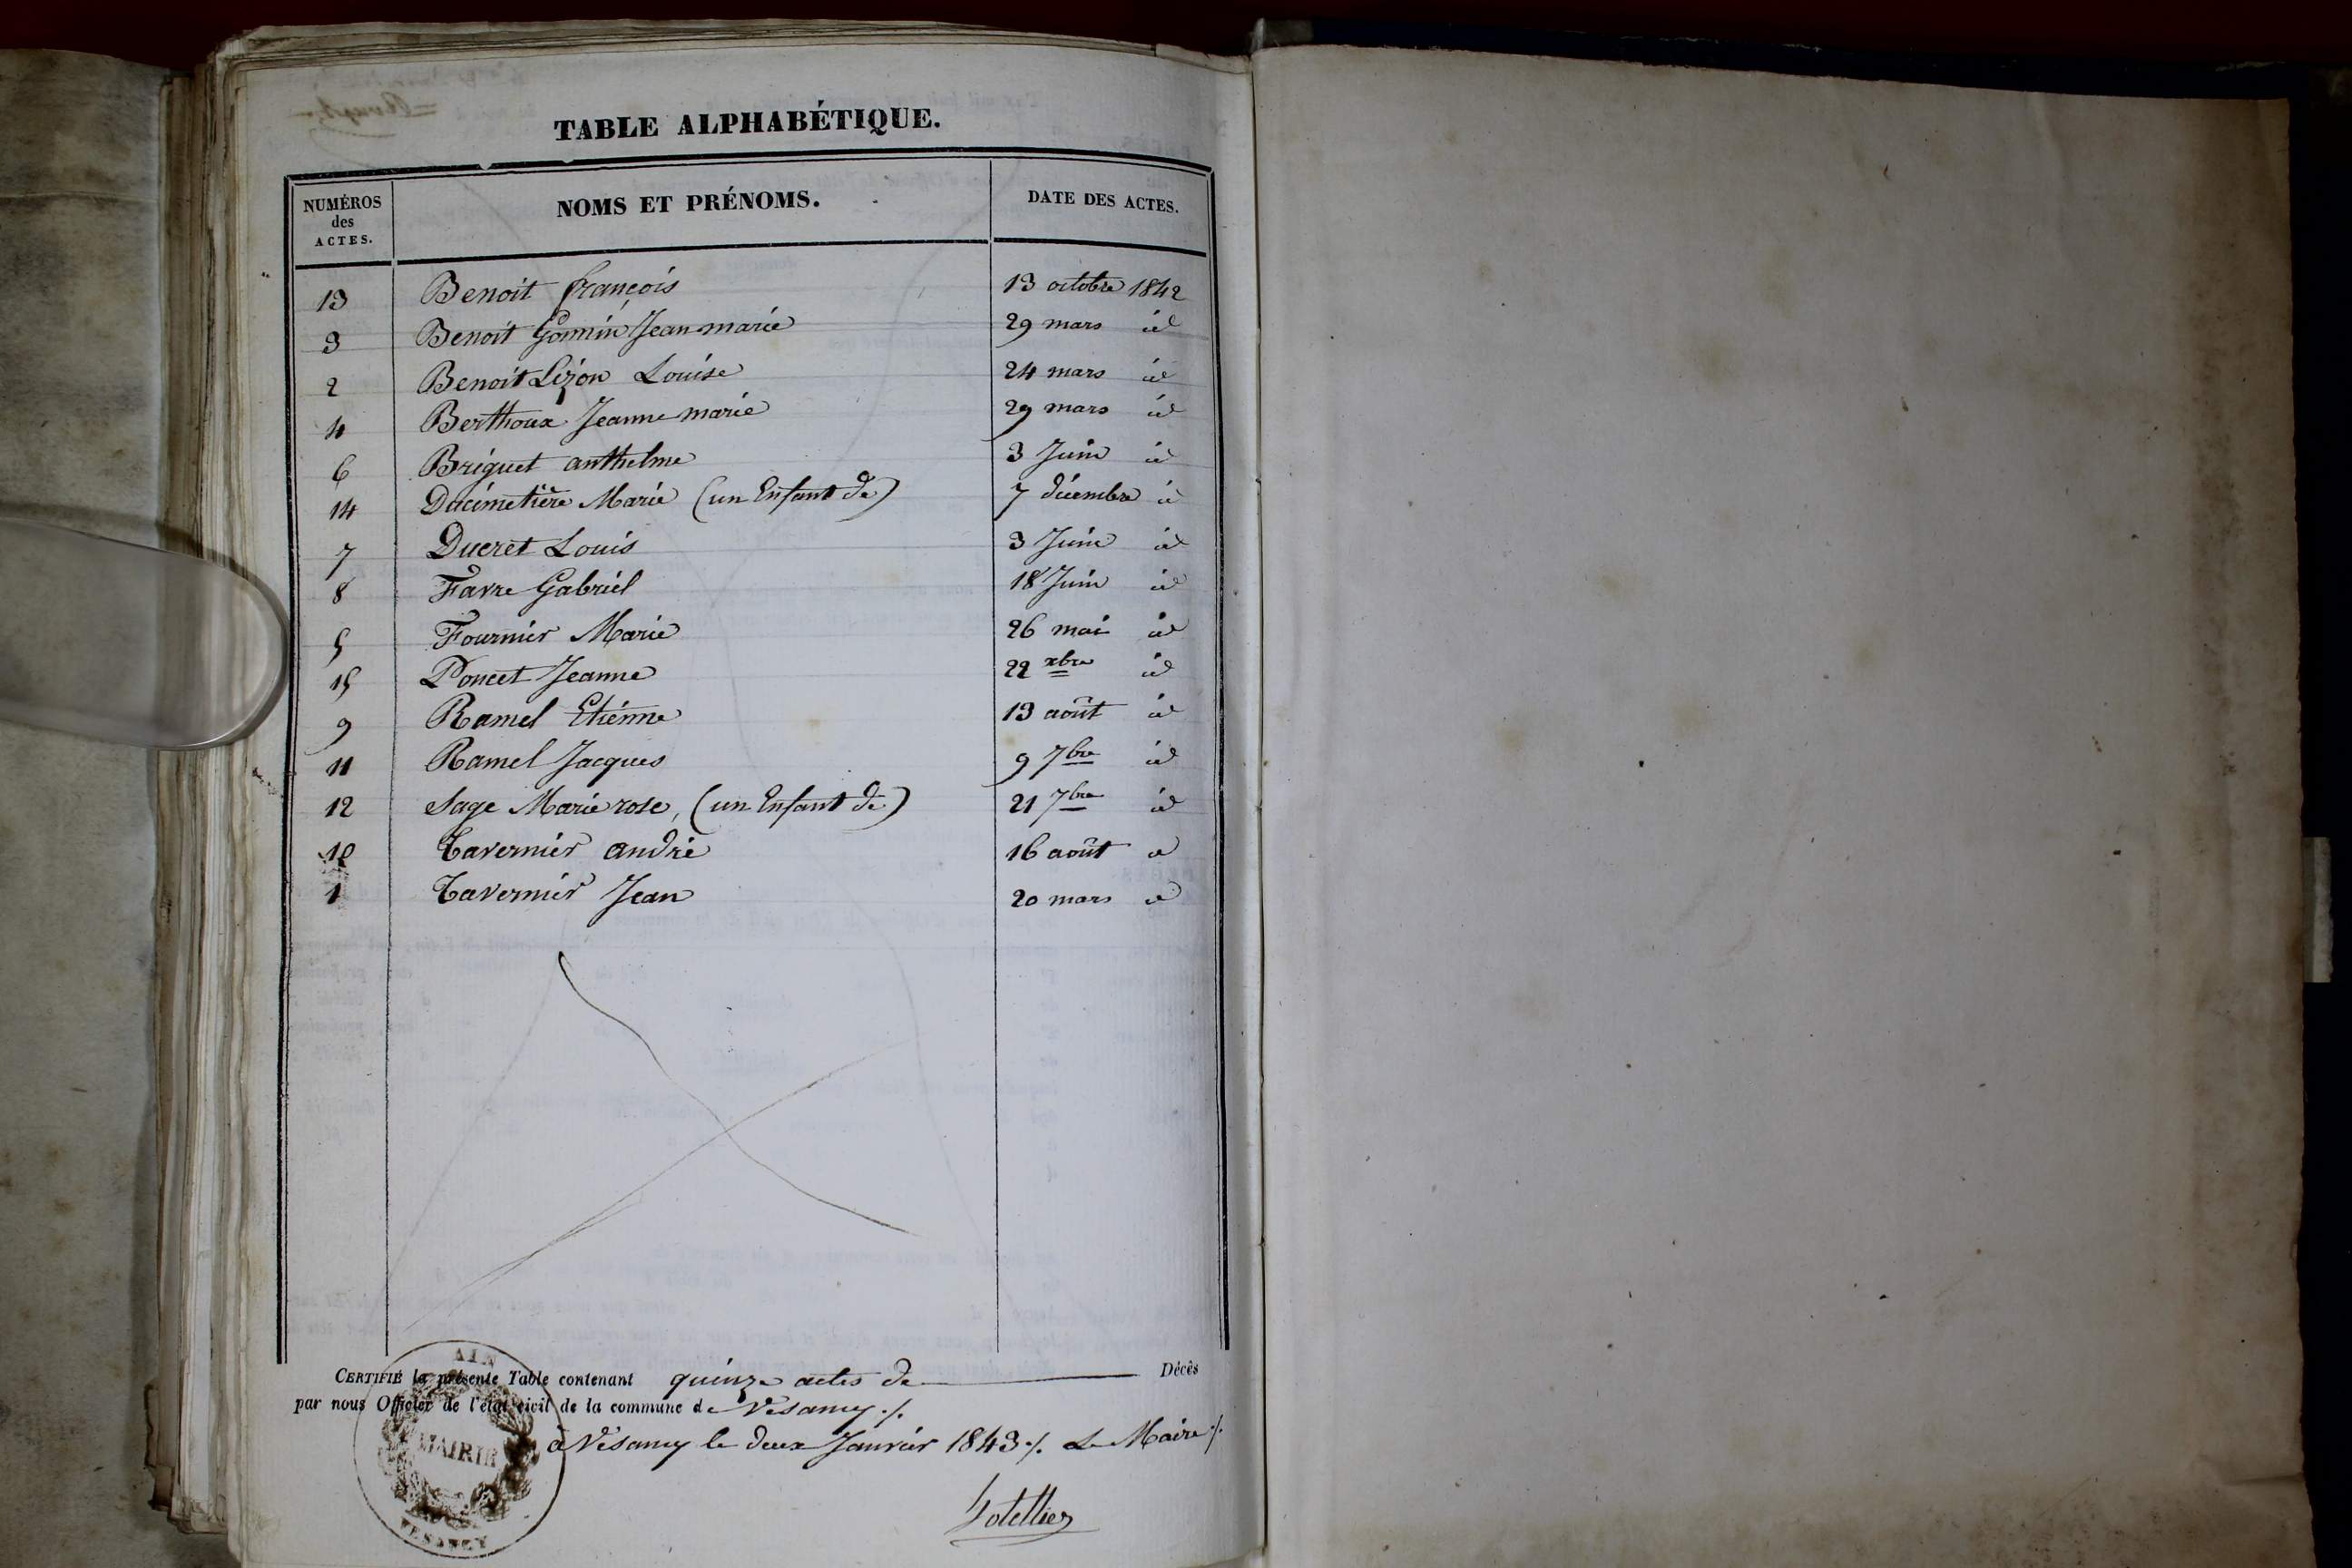 TABLE ALPHABÉTIQUE.
NUMÉROS des ACTES. NOMS ET PRÉNOMS. DATE DES ACTES.
13 Benoit françois 13 octobre 1842
3 Benoit Gonnin Jean marie 29 mars id
2 Benoit Lizon Louise 24 mars id
4 Berthoux Jeanne marie 29 mars id
6 Briguet anthelme 3 Juin id
14 Ducimetière Marie (un Enfant de) 7 décembre id
7 Ducret Louis 3 Juin id
8 Favre Gabriel 18 Juin id
5 Fournier Marie 26 mai id
15 Poncet Jeanne 22 xbre id
9 Ramel Etiénne 13 août id
11 Ramel Jacques 9 7bre id
12 Sage Marie rose, (un Enfant de) 21 7bre id
10 Tavernier andré 16 août id
1 Tavernier Jean 20 mars id
CERTIFIÉ la présente Table contenant quinze actes de Décès
par nous Officier de l'état civil de la commune de Vésancy ./.
à Vésancy le deux Janvier 1843 ./. Le Maire ./.
AIN
MAIRIE
VESANCY